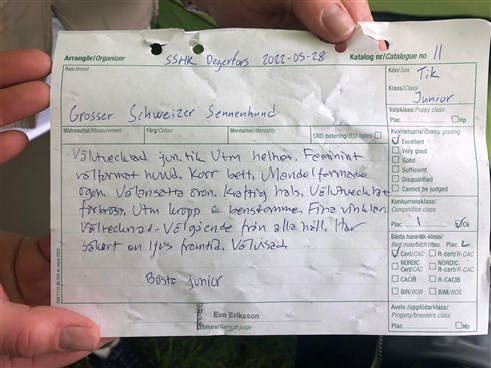 Arrangör/Organizer SSHK Degerfors 2022-05-28 Katalog nr/Catalogue no 11
Ras/Breed
Grosser Schweizer Sennenhund
Kön/Sex Tik
Klass/Class Junior
Valpklass/Puppy class
Plac. Hp
Mätresultat/Measurement Färg/Colour Mentalitet/Mentality SRD notering/BSI notes
Välutvecklad jun.tik Utm helhet. Feminint
välformat huvud. Korr bett. Mandelformade
ögon. Välansatta öron. Kraftig hals. Välutvecklat
förbröst. Utm kropp & benstomme. Fina vinklar
Vältecknad. Välgående från alla håll. Har
säkert en ljus framtid. Välvisad
Bästa junior
Eva Eriksson
Domare/Name of judge
Kvalitetspris/Quality grading
Excellent
Very good
Good
Sufficient
Disqualified
Cannot be judged
Konkurrensklass/
Competition class
Plac. 1 Ck
Bästa hane/tik-klass
Best male/bitch class Plac. 2
Cert/CAC R-cert/R-CAC
NORDIC Cert/CAC NORDIC R-cert/R-CAC
CACIB R-CACIB
BIR/BOB BIM/BOS
Avels-/uppfödarklass/
Progeny/breeders class
Plac Hp